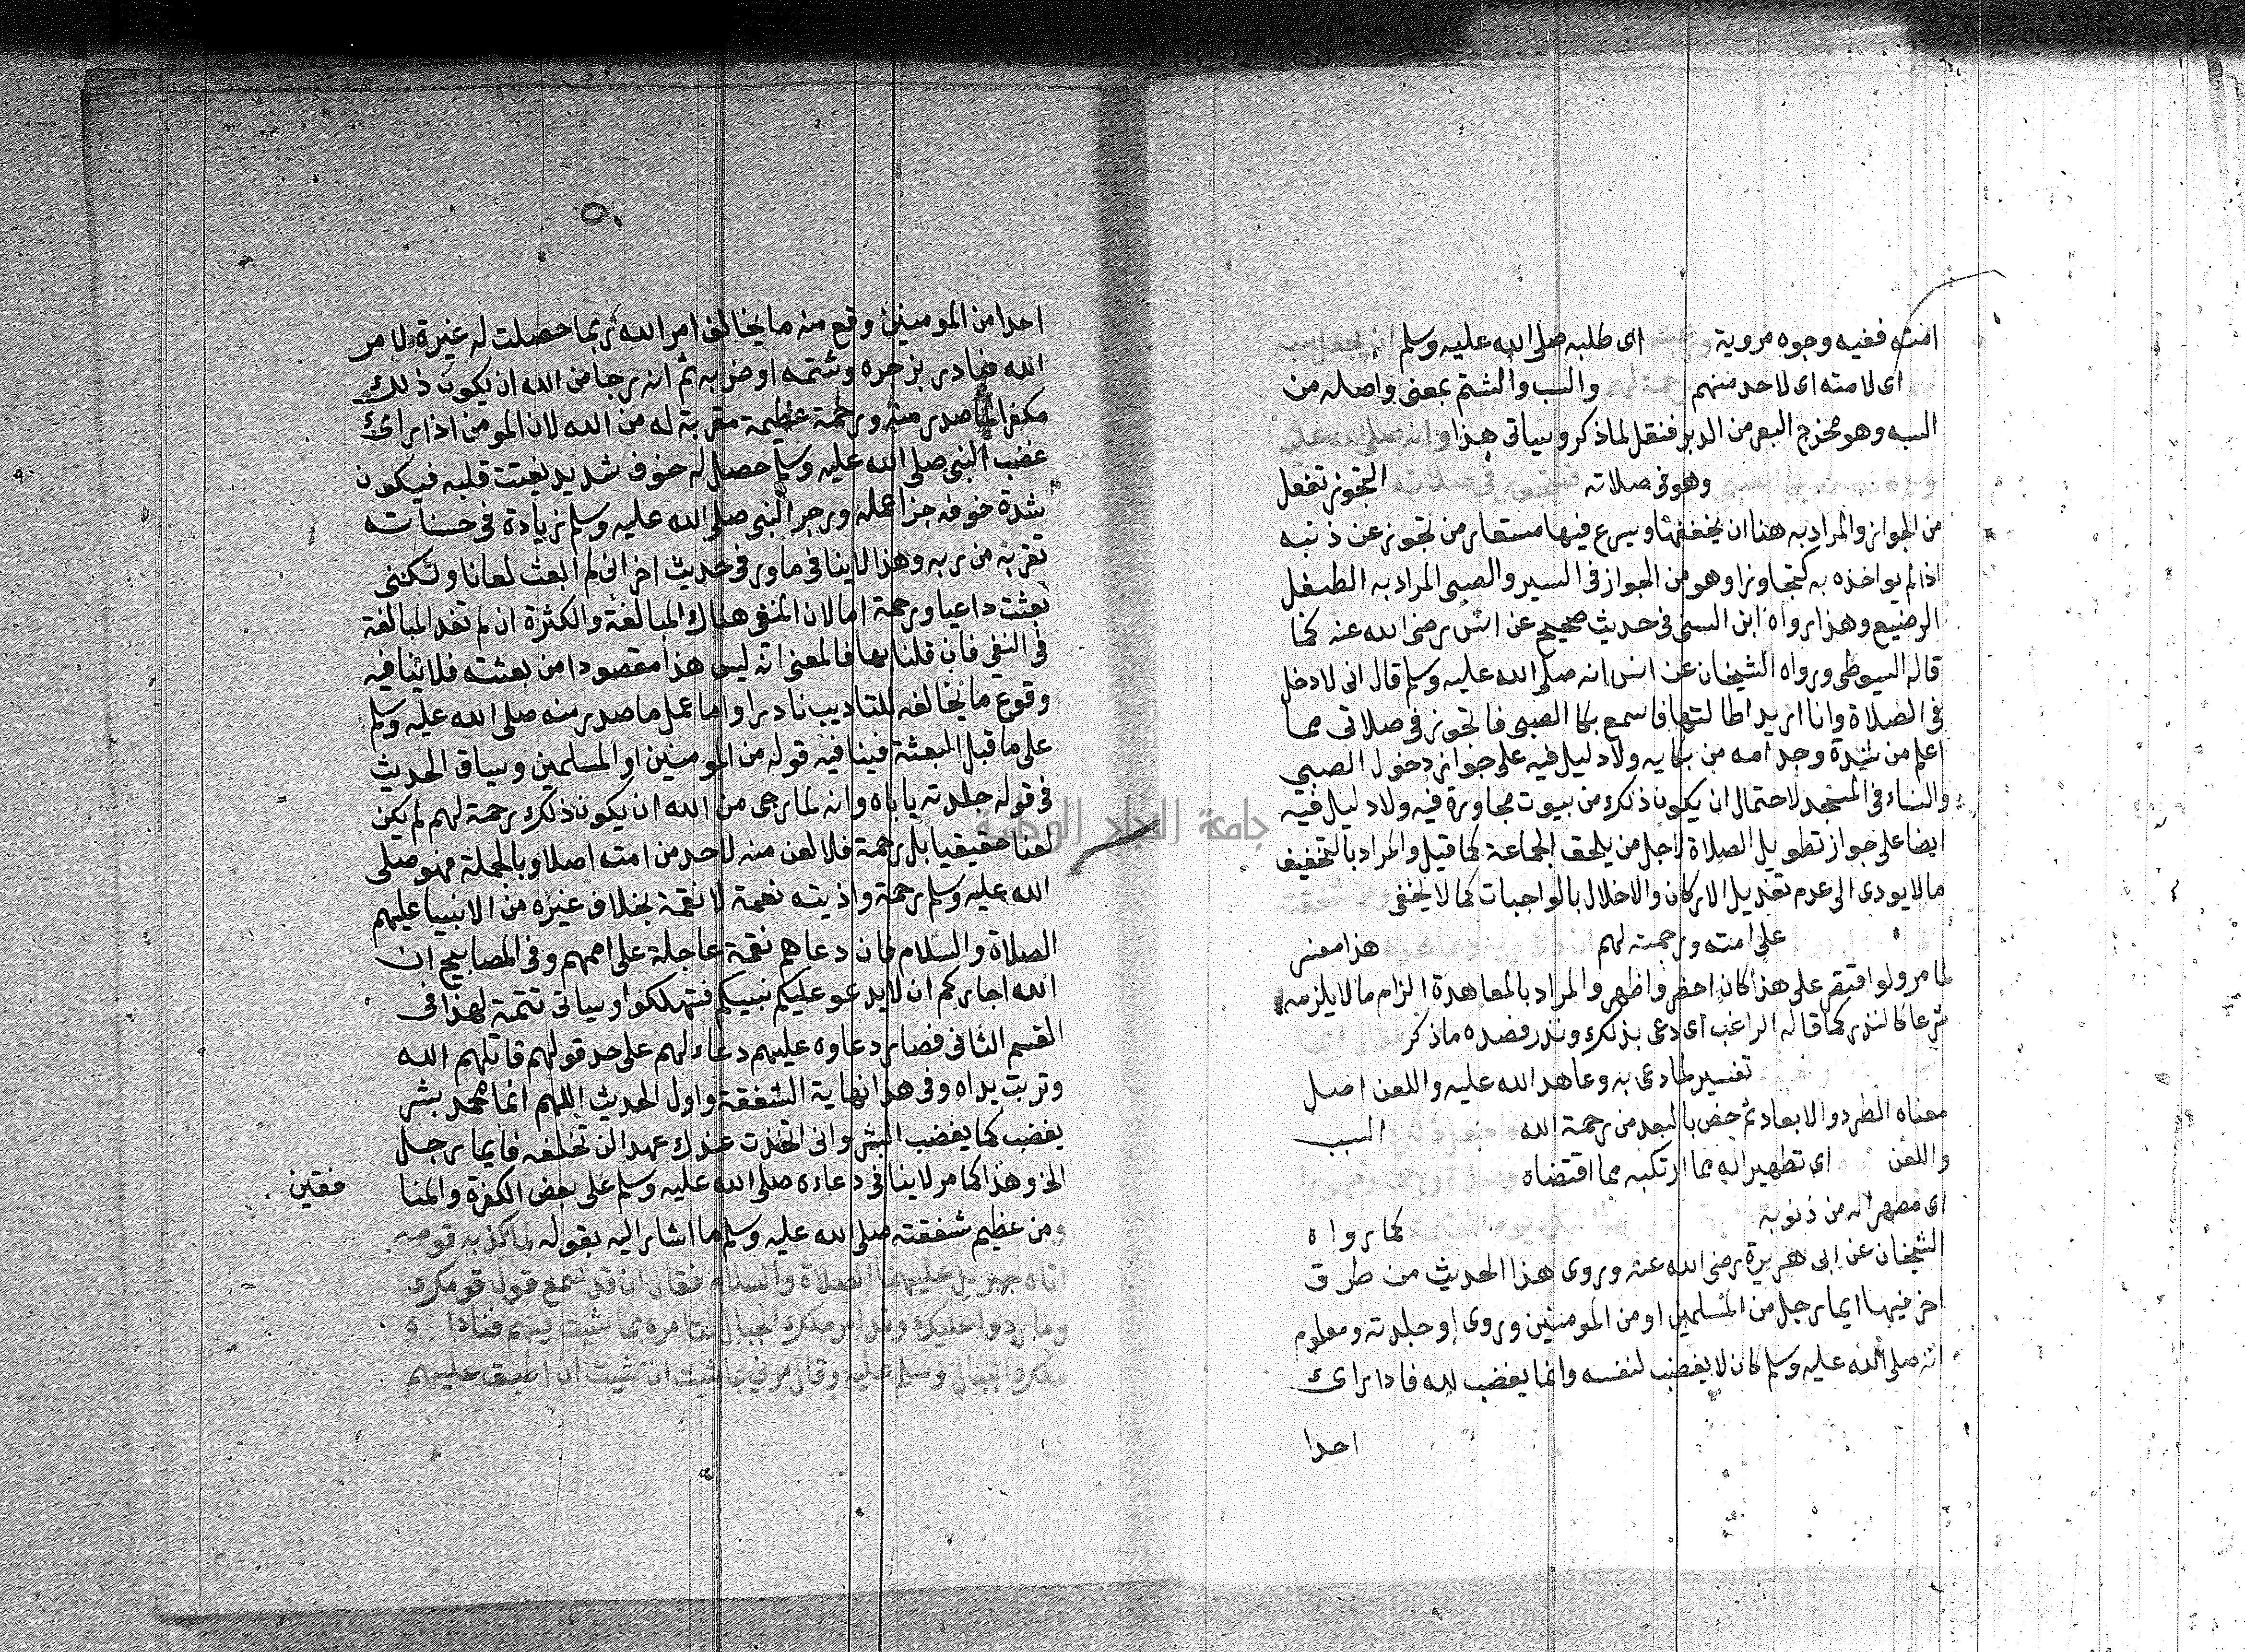 امته ففيه وجوه مروية ورغبته اى طلبه صلى الله عليه وسلم ان يجعل سبه
اى لامته اى لاحد منهم رحمة لهم والسب والشتم بمعنى واصله من
السبه وهو مخرج البعر من الدبر فنقل لما ذكر وسياتى هذا وانه صلى الله عليه
وهو فى صلاته فيتجوز فى صلاته التجوز تفعل
من الجواز والمراد به هنا ان يخففها ويسرع فيها مستعار من تجوز عن ذنبه
اذا لم يواخذه به كتجاوز او هو من الجواز فى السير والصبى المراد به الطفل
الرضيع وهذا رواه ابن السنى فى حديث صحيح عن انس رضى الله عنه كما
قاله السيوطى ورواه الشيخان عن انس انه صلى الله عليه وسلم قال انى لادخل
فى الصلاة وانا اريد اطالتها فاسمع بكا الصبى فاتجوز فى صلاتى مما
اعلم من شدة وجد امه من بكايه ولا دليل فيه على جواز دخول الصبى
والنساء فى المسجد لاحتمال ان يكون ذلك من بيوت مجاورة فيه ولا دليل فيه
ايضا على جواز تطويل الصلاة لاجل من يلحق الجماعة كما قيل والمراد بالتخفيف
ما لا يودى الى عدم تعديل الاركان والاخلال بالواجبات كما لا يخفى ومن شفقته
على امته ورحمته لهم هذا معنى
لما مر ولو اقتصر على هذا كان احضر واظهر والمراد بالمعاهدة الزام ما لا يلزمه
شرعا كالنذر كما قاله الراغب اى دعى بذلك ونذر قصده ما ذكر
تفسير لما دعى به وعاهد الله عليه واللعن اصل
معناه الطرد والابعاد ثم خص بالبعد من رحمة الله السب
واللعن اى تطهيرا له مما ارتكبه مما اقتضاه
اى مطهرا له من ذنوبه كما رواه
الشيخان عن ابى هريرة رضى الله عنه وروى هذا الحديث من طرق
اخر فيها ايما رجل من المسلمين او من المومنين وروى او جلدته ومعلوم
انه صلى الله عليه وسلم كان لا يغضب لنفسه وانما يغضب لله فاذا راى
احدا
٥٠
احدا من المومنين وقع منه ما يخالف امر الله ربما حصلت له غيرة لامر
الله فبادر بزجره وشتمه او ضربه ثم انه رجا من الله ان يكون ذلك
مكفرا لما صدر منه ورحمة عظيمة مقربة له من الله لان المومن اذا راى
غضب النبى صلى الله عليه وسلم حصل له خوف شديد يفتت قلبه فيكون
شدة خوفه جزا عمله وزجر النبى صلى الله عليه وسلم زيادة فى حسناته
تقربه من ربه وهذا لا ينافى ما ورد فى حديث اخر انى لم ابعث لعانا ولكننى
بعثت داعيا ورحمة اما لان المنفى هناك المبالغة والكثرة ان لم تفد المبالغة
فى النفى فان قلنا بها فالمعنى انه ليس هذا مقصودا من بعثته فلا ينافيه
وقوع ما يخالفه للتاديب نادرا واما حمل ما صدر منه صلى الله عليه وسلم
على ما قبل البعثة فينافيه قوله من المومنين او المسلمين وسياق الحديث
فى قوله جلدته ياباه وانه لما رجى من الله ان يكون ذلك رحمة لهم لم يكن
لعنا حقيقيا بل رحمة فلا لعن منه لاحد من امته اصلا وبالجملة فهو صلى
الله عليه وسلم رحمة واذيته نعمة لا نقمة بخلاف غيره من الانبيا عليهم
الصلاة والسلام فان دعاهم نقمة عاجلة على اممهم وفى المصابيح ان
الله اجاركم ان لا يدعو عليكم نبيكم فتهلكوا وسياتى تتمة لهذا فى
القسم الثانى فصار دعاوه عليهم دعاء لهم على حد قولهم قاتلهم الله
وتربت يداه وفى هذا نهاية الشفقة واول الحديث اللهم انما محمد بشر
يغضب كما يغضب البشر وانى اتخذت عندك عهدا لن تخلفه فايما رجل
الخ وهذا كما مر لا ينافى دعاءه صلى الله عليه وسلم على بعض الكفرة والمنا
فقين
ومن عظيم شفقته صلى الله عليه وسلم ما اشار اليه بقوله لما كذبه قومه
اتاه جبريل عليهما الصلاة والسلام فقال ان قد سمع قول قومك
وما ردوا عليك وقد امر ملك الجبال لتامره بما شيت فيهم فناداه
ملك الجبال وسلم عليه وقال مرني بما شيت ان شيت ان اطبق عليهم
جامعة النجاح الوطنية